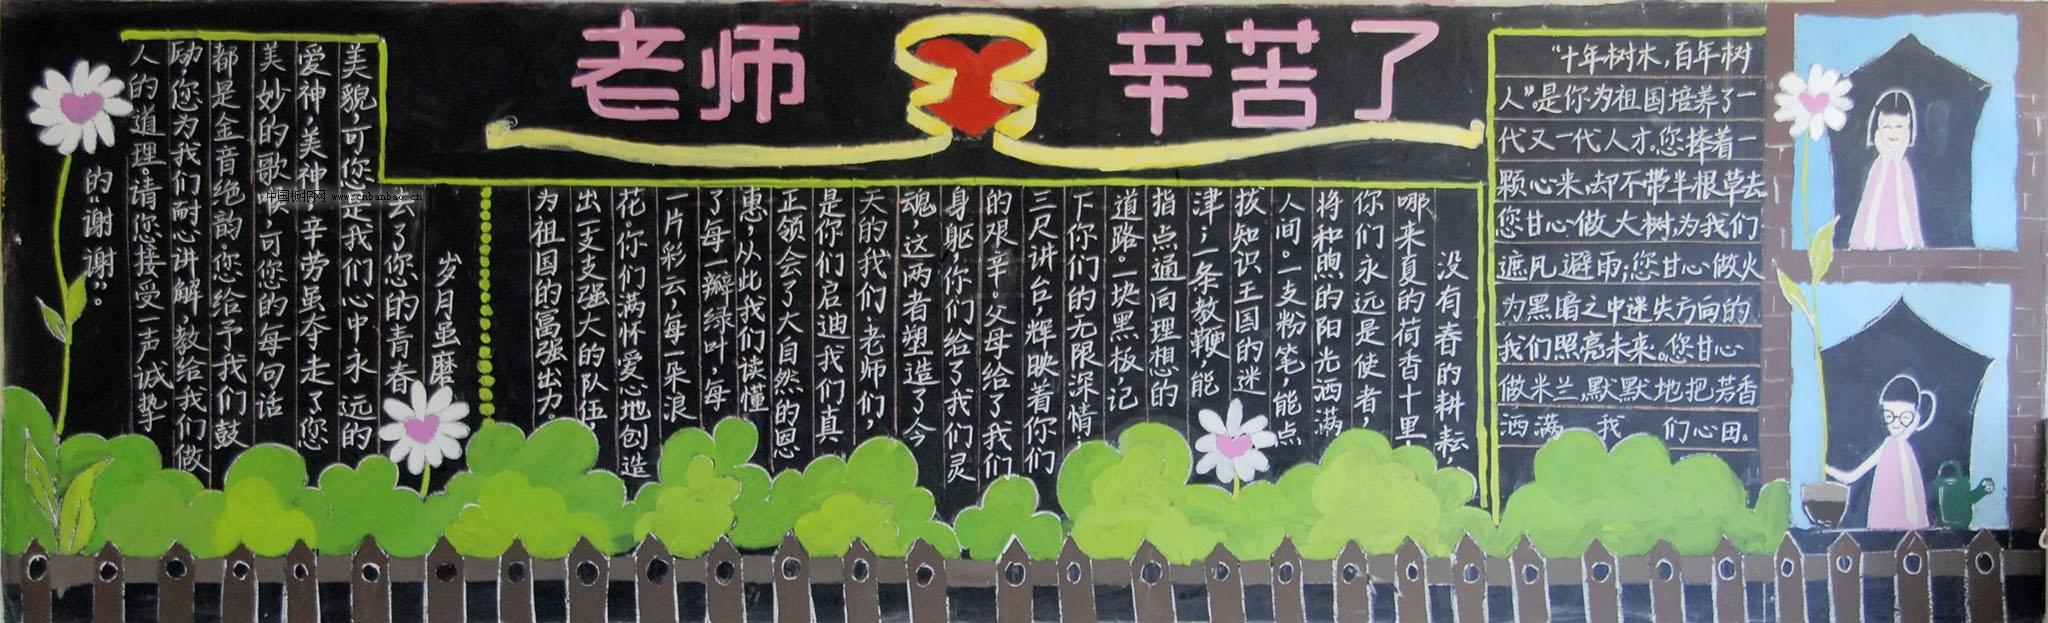 老师 辛苦了
“十年树木，百年树
人”。是你为祖国培养了一
代又一代人才。您捧着一
颗心来，却不带半根草去
您甘心做大树，为我们
遮风避雨；您甘心做火
为黑暗之中迷失方向的
我们照亮未来。您甘心
做米兰，默默地把芳香
洒满我们心田。
没有春的耕耘，
哪来夏的荷香十里
你们永远是使者，
将和煦的阳光洒满
人间。一支粉笔，能点
拔知识王国的迷
津；一条教鞭能
指点通向理想的
道路。一块黑板记
下你们的无限深情
三尺讲台，辉映着你们
的艰辛。父母给了我们
身躯，你们给了我们灵
魂，这两者塑造了今
天的我们，老师们，
是你们启迪我们真
正领会了大自然的恩
惠，从此我们读懂
了每一瓣绿叶，每
一片彩云，每一朵浪
花。你们满怀爱心地创造
出一支支强大的队伍，
为祖国的富强出力。
岁月虽磨
去了您的青春
美貌，可您是我们心中永远的
爱神，美神。辛劳虽夺走了您
美妙的歌喉，可您的每句话
都是金音绝韵。您给予我们鼓
励，您为我们耐心讲解，教给我们做
人的道理。请您接受一声诚挚
的“谢谢”。
中国板报网 www.cnbanbao.cn